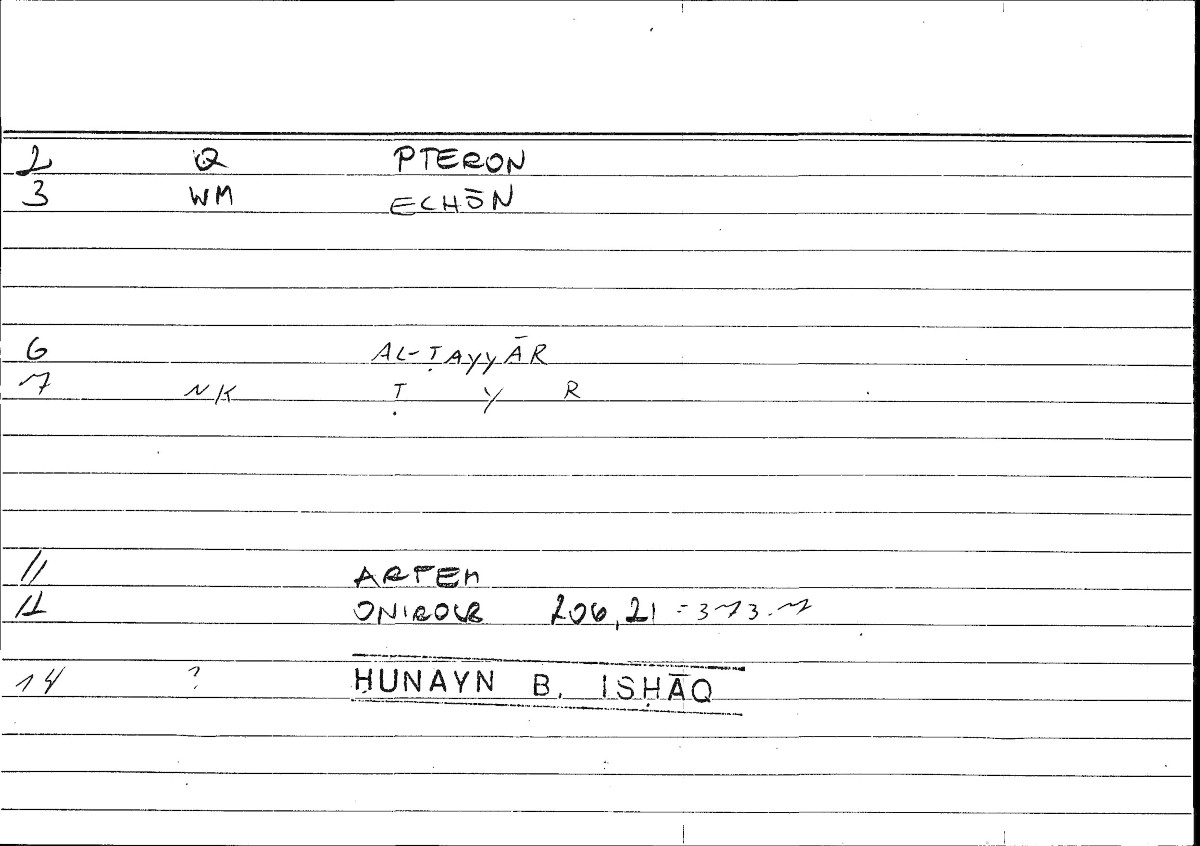 2 Q PTERON
3 WM ECHŌN
6 AL-ṬAYYĀR
7 NK Ṭ Y R
11 ARTEM
12 ONIROCR 206,21 = 373.7
14 ? ḤUNAYN B. ISḤĀQ